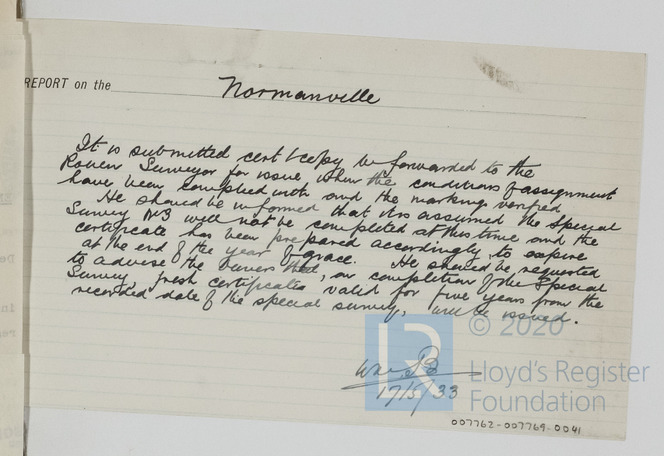 REPORT on the Normanville
It is submitted cert & copy be forwarded to the
Rouen Surveyor for issue when the conditions of assignment
have been complied with and the marking verified
He should be informed that it is assumed the Special
Survey No3 will not be completed at this time and the
certificate has been prepared accordingly to expire
at the end of the year of grace. He should be requested
to advise the Owners that, on completion of the Special
Survey, fresh certificates valid for five years from the
recorded date of the special survey, will be issued.
17/5/33
© 2020
Lloyd's Register
Foundation
007762-007769-0041